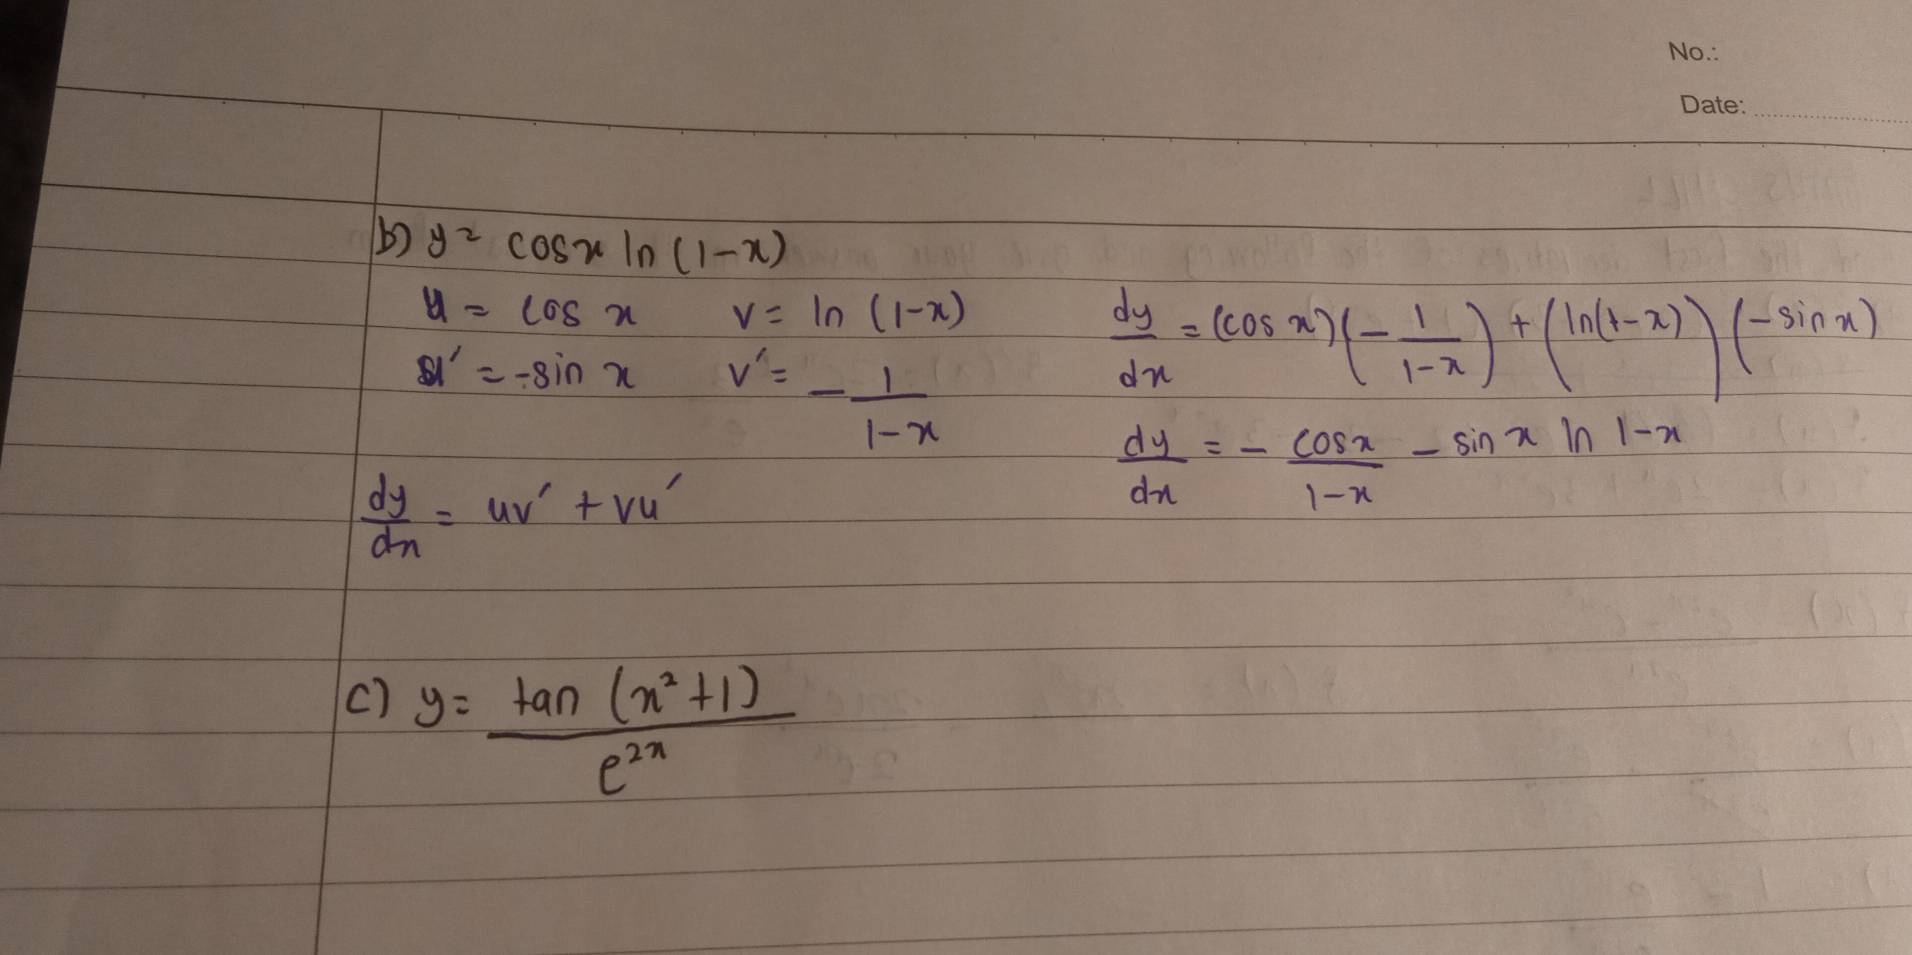 No.:
Date:
b) y = cosx ln (1-x)
u = cos x v = ln (1-x)
u' = -sin x v' = - 1/1-x
dy/dx = uv' + vu'
dy/dx = (cos x)(- 1/1-x) + (ln(1-x))(-sin x)
dy/dx = - cosx/1-x - sin x ln 1-x
c) y = tan (x²+1)/e²ˣ